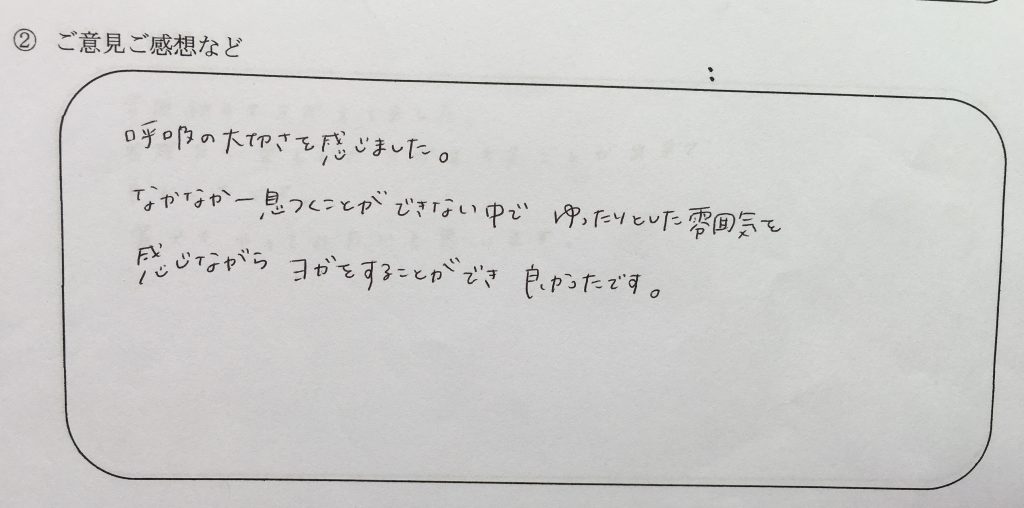 ② ご意見ご感想など
呼吸の大切さを感じました。
なかなか一息つくことができない中で ゆったりとした雰囲気を
感じながら ヨガをすることができ 良かったです。